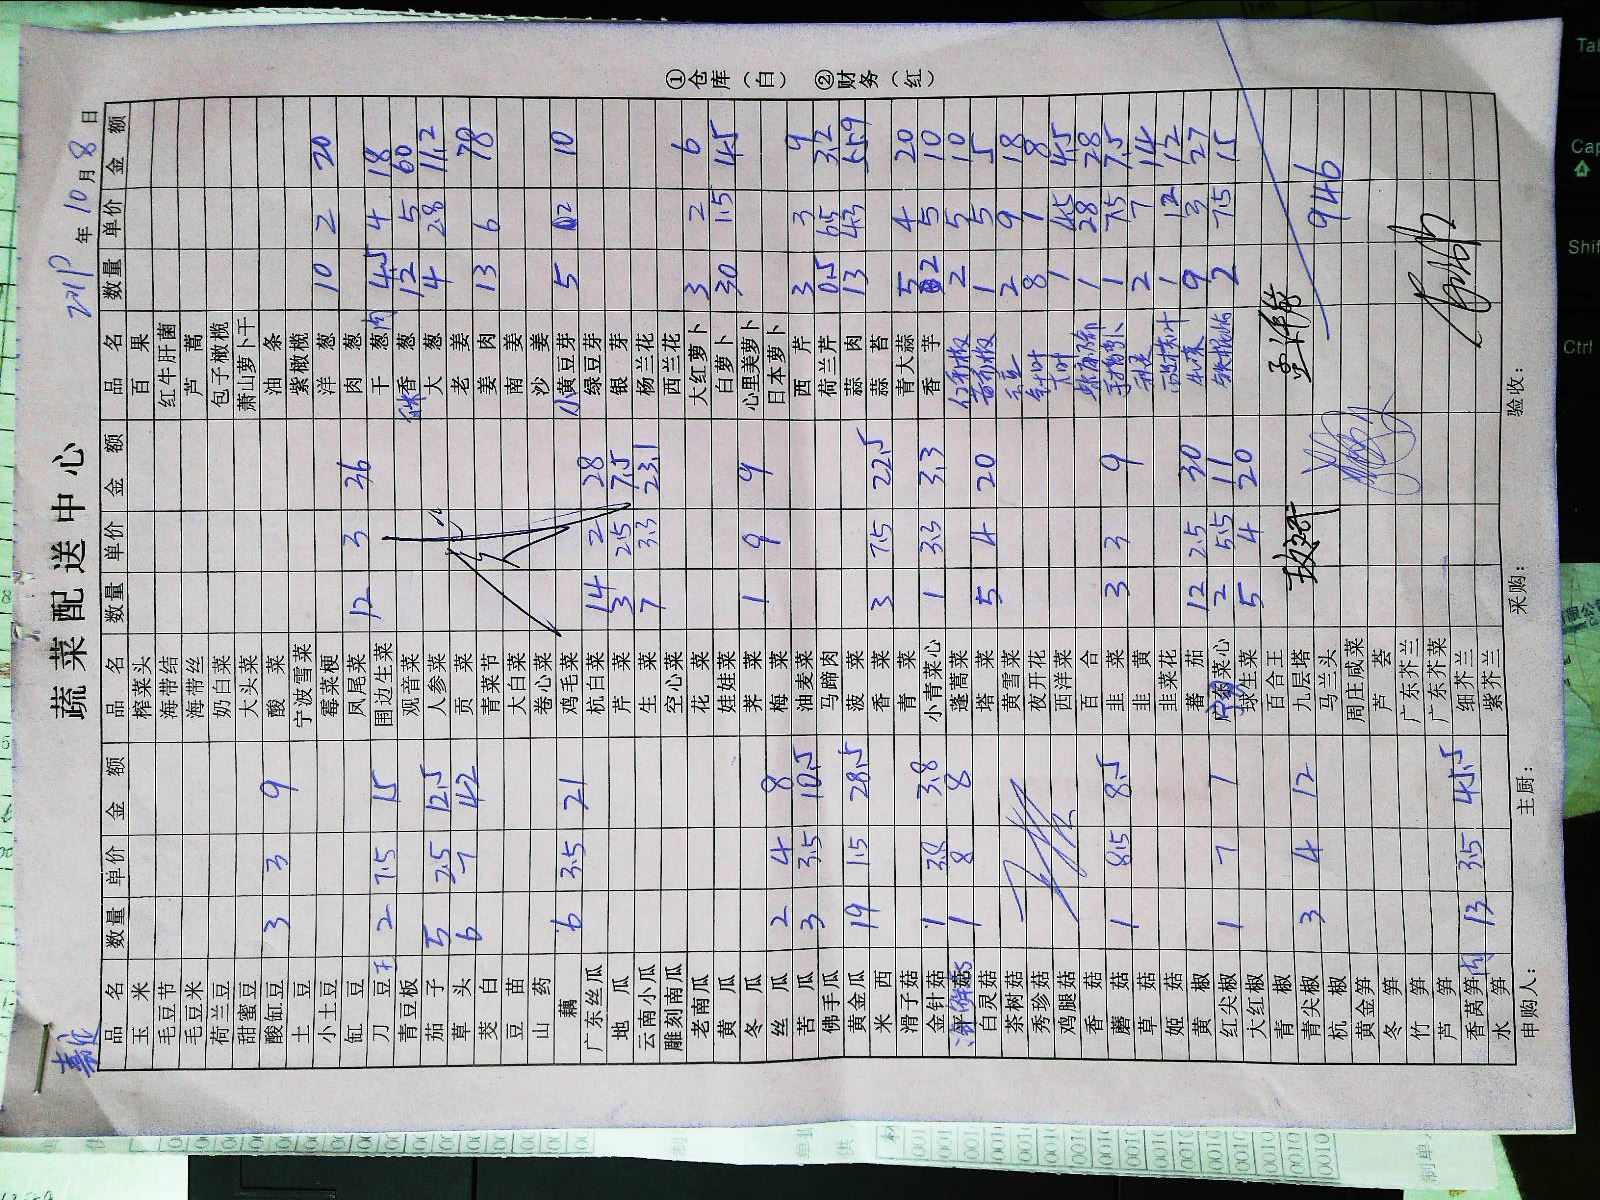 蔬菜配送中心
年 10 月 8 日
品名 数量 单价 金额 品名 数量 单价 金额 品名 数量 单价 金额
玉米 榨菜头 百果
毛豆节 海带结 红牛肝菌
毛豆米 海带丝 芦蒿
荷兰豆 奶白菜 包子橄榄
甜蜜豆 大头菜 萧山萝卜干
酸缸豆 3 3 9 酸菜 油条
土豆 宁波雪菜 紫橄榄
小土豆 莓菜梗 洋葱 10 2 20
缸豆 凤尾菜 12 3 36 肉葱
刀豆 2 7.5 15 围边生菜 干葱肉 4.5 4 18
青豆板 观音菜 香葱 12 5 60
茄子 5 2.5 12.5 人参菜 大葱 4 2.8 11.2
草头 6 7 42 贡菜 老姜
茭白 青菜节 姜肉 13 6 78
豆苗 大白菜 南姜
山药 卷心菜 沙姜
藕 6 3.5 21 鸡毛菜 小黄豆芽 5 2 10
广东丝瓜 杭白菜 14 2 28 绿豆芽
地瓜 芹菜 3 2.5 7.5 银芽
云南小瓜 生菜 7 3.3 23.1 杨兰花
雕刻南瓜 空心菜 西兰花
老南瓜 花菜 大红萝卜 3 2 6
黄瓜 娃娃菜 白萝卜 30 1.5 45
冬瓜 荠菜 1 9 9 心里美萝卜
丝瓜 2 4 8 梅菜 日本萝卜
苦瓜 3 3.5 10.5 油麦菜 西芹 3 3 9
佛手瓜 马蹄肉 荷兰芹 0.5 6.5 3.2
黄金瓜 19 1.5 28.5 菠菜 蒜肉 13 4.3 55.9
米西 香菜 3 7.5 22.5 蒜苔
滑子菇 青菜 青大蒜 5 4 20
金针菇 1 3.8 3.8 小青菜心 1 3.3 3.3 香芋 2 5 10
海鲜菇 1 8 8 蓬蒿菜 2 5 10
白灵菇 塔菜 5 4 20 1 5 5
茶树菇 黄雪菜 毛豆 2 9 18
秀珍菇 夜开花 8 1 8
鸡腿菇 西洋菜 1 45 45
香菇 百合 1 28 28
蘑菇 1 8.5 8.5 韭菜 3 3 9 1 7.5 7.5
草菇 韭黄 秋葵 2 7 14
姬菇 韭菜花 1 12 12
黄椒 蕃茄 12 2.5 30 9 3 27
红尖椒 1 7 7 菜心 2 5.5 11 2 7.5 15
大红椒 球生菜 5 4 20
青椒 百合王
青尖椒 3 4 12 九层塔 946
杭椒 马兰头
黄金笋 周庄咸菜
冬笋 芦荟
竹笋 广东芥兰
芦笋 广东芥菜
香莴笋肉 13 3.5 45.5 细芥兰
水笋 紫芥兰
申购人： 主厨： 采购： 验收：
①仓库（白） ②财务（红）